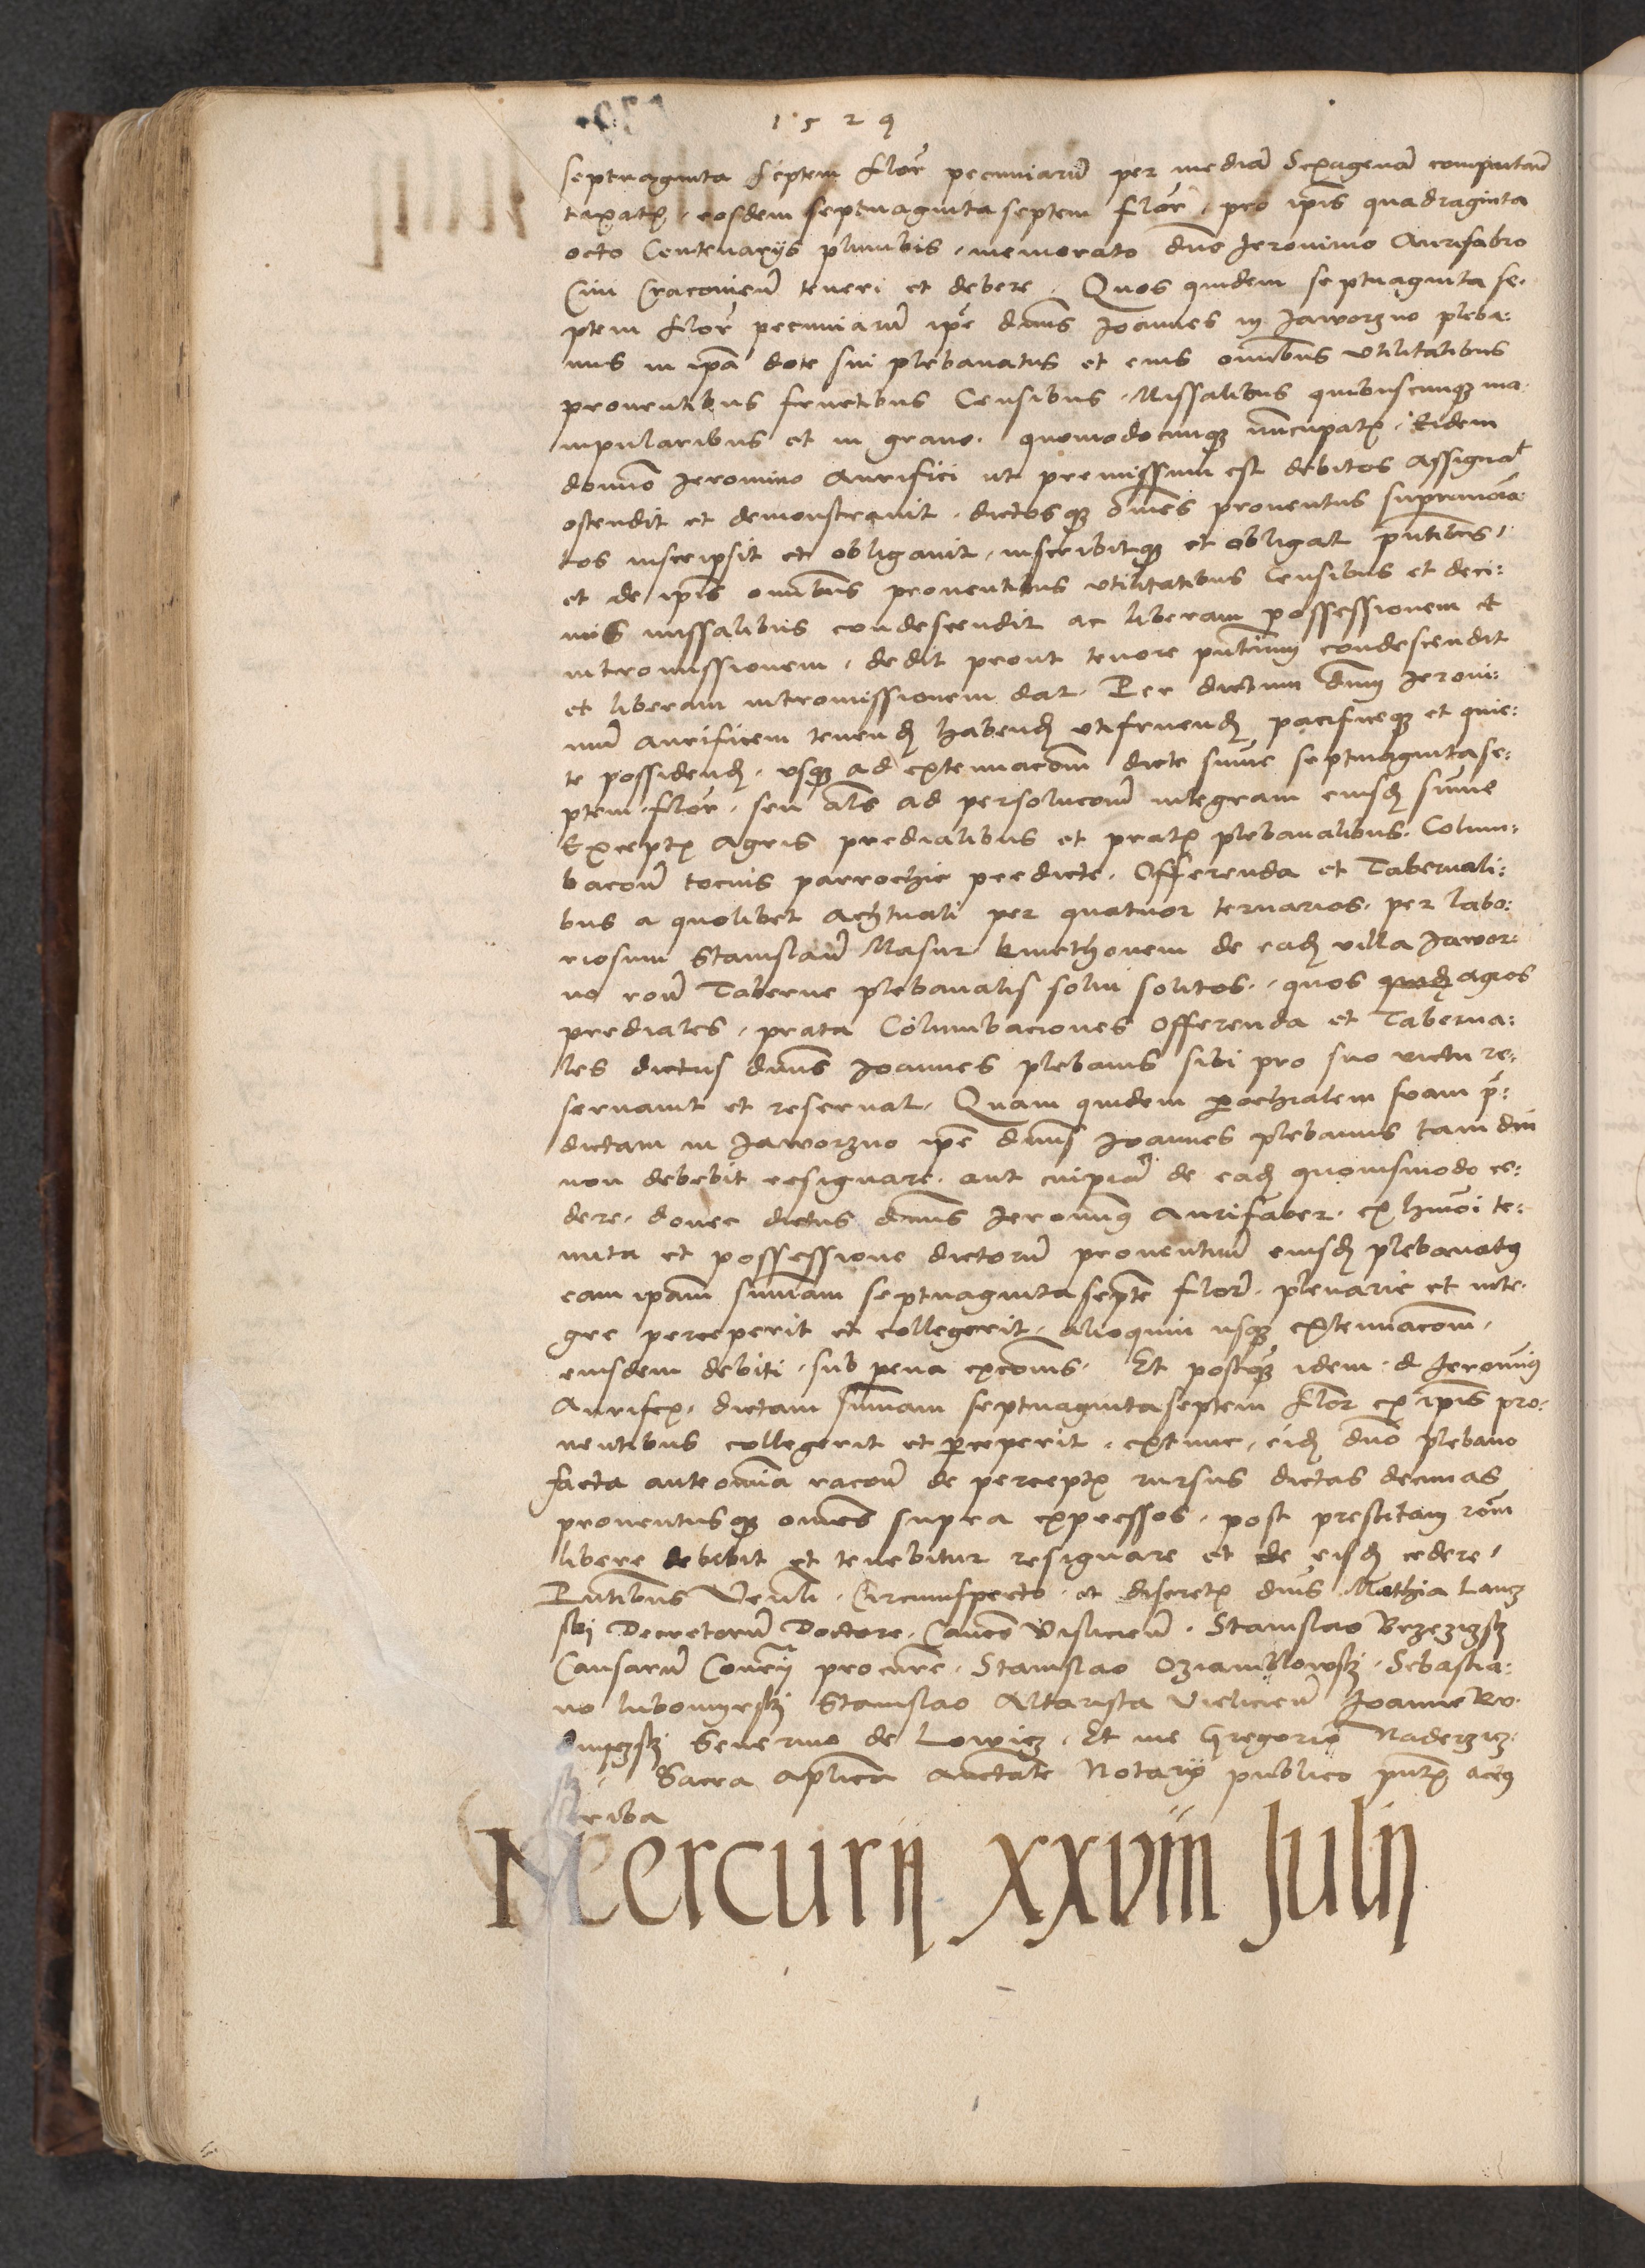 1529
septuaginta septem flor pecuniarū per mediā sexagenā computañ
taxatꝭ, eosdem septuaginta septem flor, pro ip̄is quadraginta
octo Centenarijs plumbis, memorato dn̄o Jeronimo Aurifabro
Ciui Cracouien̄ teneri et debere. Quos quidem septuaginta se-
ptem flor pecuniarū ip̄e dn̄us Joannes in Jaworzno pleba:
nus in ip̄a dote sui plebanatus et eius om̄ibus vtilitatibus
prouentibus fructibus Censibus, Missalibus quibuscunqꝫ ma-
nipularibus et in grano, quomodocunqꝫ nūcupatꝭ, Eidem
domīo Jeronimo Aurifici ut premissum est debitos assignat
ostendit et demonstrauit, dictosqꝫ om̄es prouentus supranoīa-
tos inscripsit et obligauit, inscribitqꝫ et obligat pn̄tibus,
et de ip̄is om̄ibus prouentibus vtilitatibus Censibus et deci:
mis missalibus condescendit ac liberam possessionem et
intromissionem, dedit prout tenore pn̄tium condescendit
et liberam intromissionem dat, Per dictum dn̄m Jeroni:
mū aurificem tenenđ habenđ vtifruenđ pacificeqꝫ et quie:
te possidenđ, vsqꝫ ad extenuacōm dicte sūme septuaginta se:
ptem flor, seu al̄s ad persolucom̄ integram eiusđ sūme
Exceptꝭ Agris predialibus et pratꝭ plebanalibus, Colum-
bacom̄ tocius parrochie predicte, Offerenda et Tabernali:
bus a quolibet achtuali per quatuor ternarios, per labo:
riosum Stanislaū Masur kmethonem de eađ villa Jawor-
no roñ Taberne plebanalis solui solitos, quos agros
prediales, prata Columbaciones Offerenda et Taberna:
les dictus dn̄us Joannes plebanus sibi pro suo victu re-
seruauit et reseruat, Quam quidem p̱ochialem suam p̄:
dictam in Jaworzno ip̄e dn̄us Joannes plebanus tam diu
non debebit resignare, aut cuipiā de eađ quouismodo ce:
dere, donec dictus dn̄us Jeronimꝰ Aurifaber, ex hmōi te:
nuta et possessione dictorū prouentuū eiusđ plebanatꝰ
eam ip̄am sūmam septuaginta septē flor, plenarie et inte-
gre perceperit et collegerit, alioquin usqꝫ extenuacōm,
eiusdem debiti, sub pena excōmis. Et postqꝫ idem d Jeronimꝰ
Aurifex, dictam sūmam septuaginta septem flor ex ip̄is pro-
uentibus collegerit et p̱ceperit, extunc, eiđ dn̄o plebano
facta ante om̄ia racoñ de perceptꝭ rursus dictas decimas
prouentusqꝫ om̄es supra expressos, post prestitam roñm
libere debebit et tenebitur resignare et de eisđ cedere,
Pn̄tibus Ven̄li, Circumspecto et discretꝭ dn̄is Mathia Lancz
ski Decretorū Doctore, Canōco Vislicien̄, Stanislao Brzezizsky
Causarū Conrij procure, Stanislao Oziamblowskj, Sebastia:
no lubomyrskj Stanislao Altarista Vielicien̄ Joanne Ro-
dnyczskj Seuerino de Lowicz, Et me Gregorio Naderzicz
skj, Sacra Aplīca Auctāte Notario publico pn̄tꝭ actꝰ
scriba
Mercurij xxviij Julij